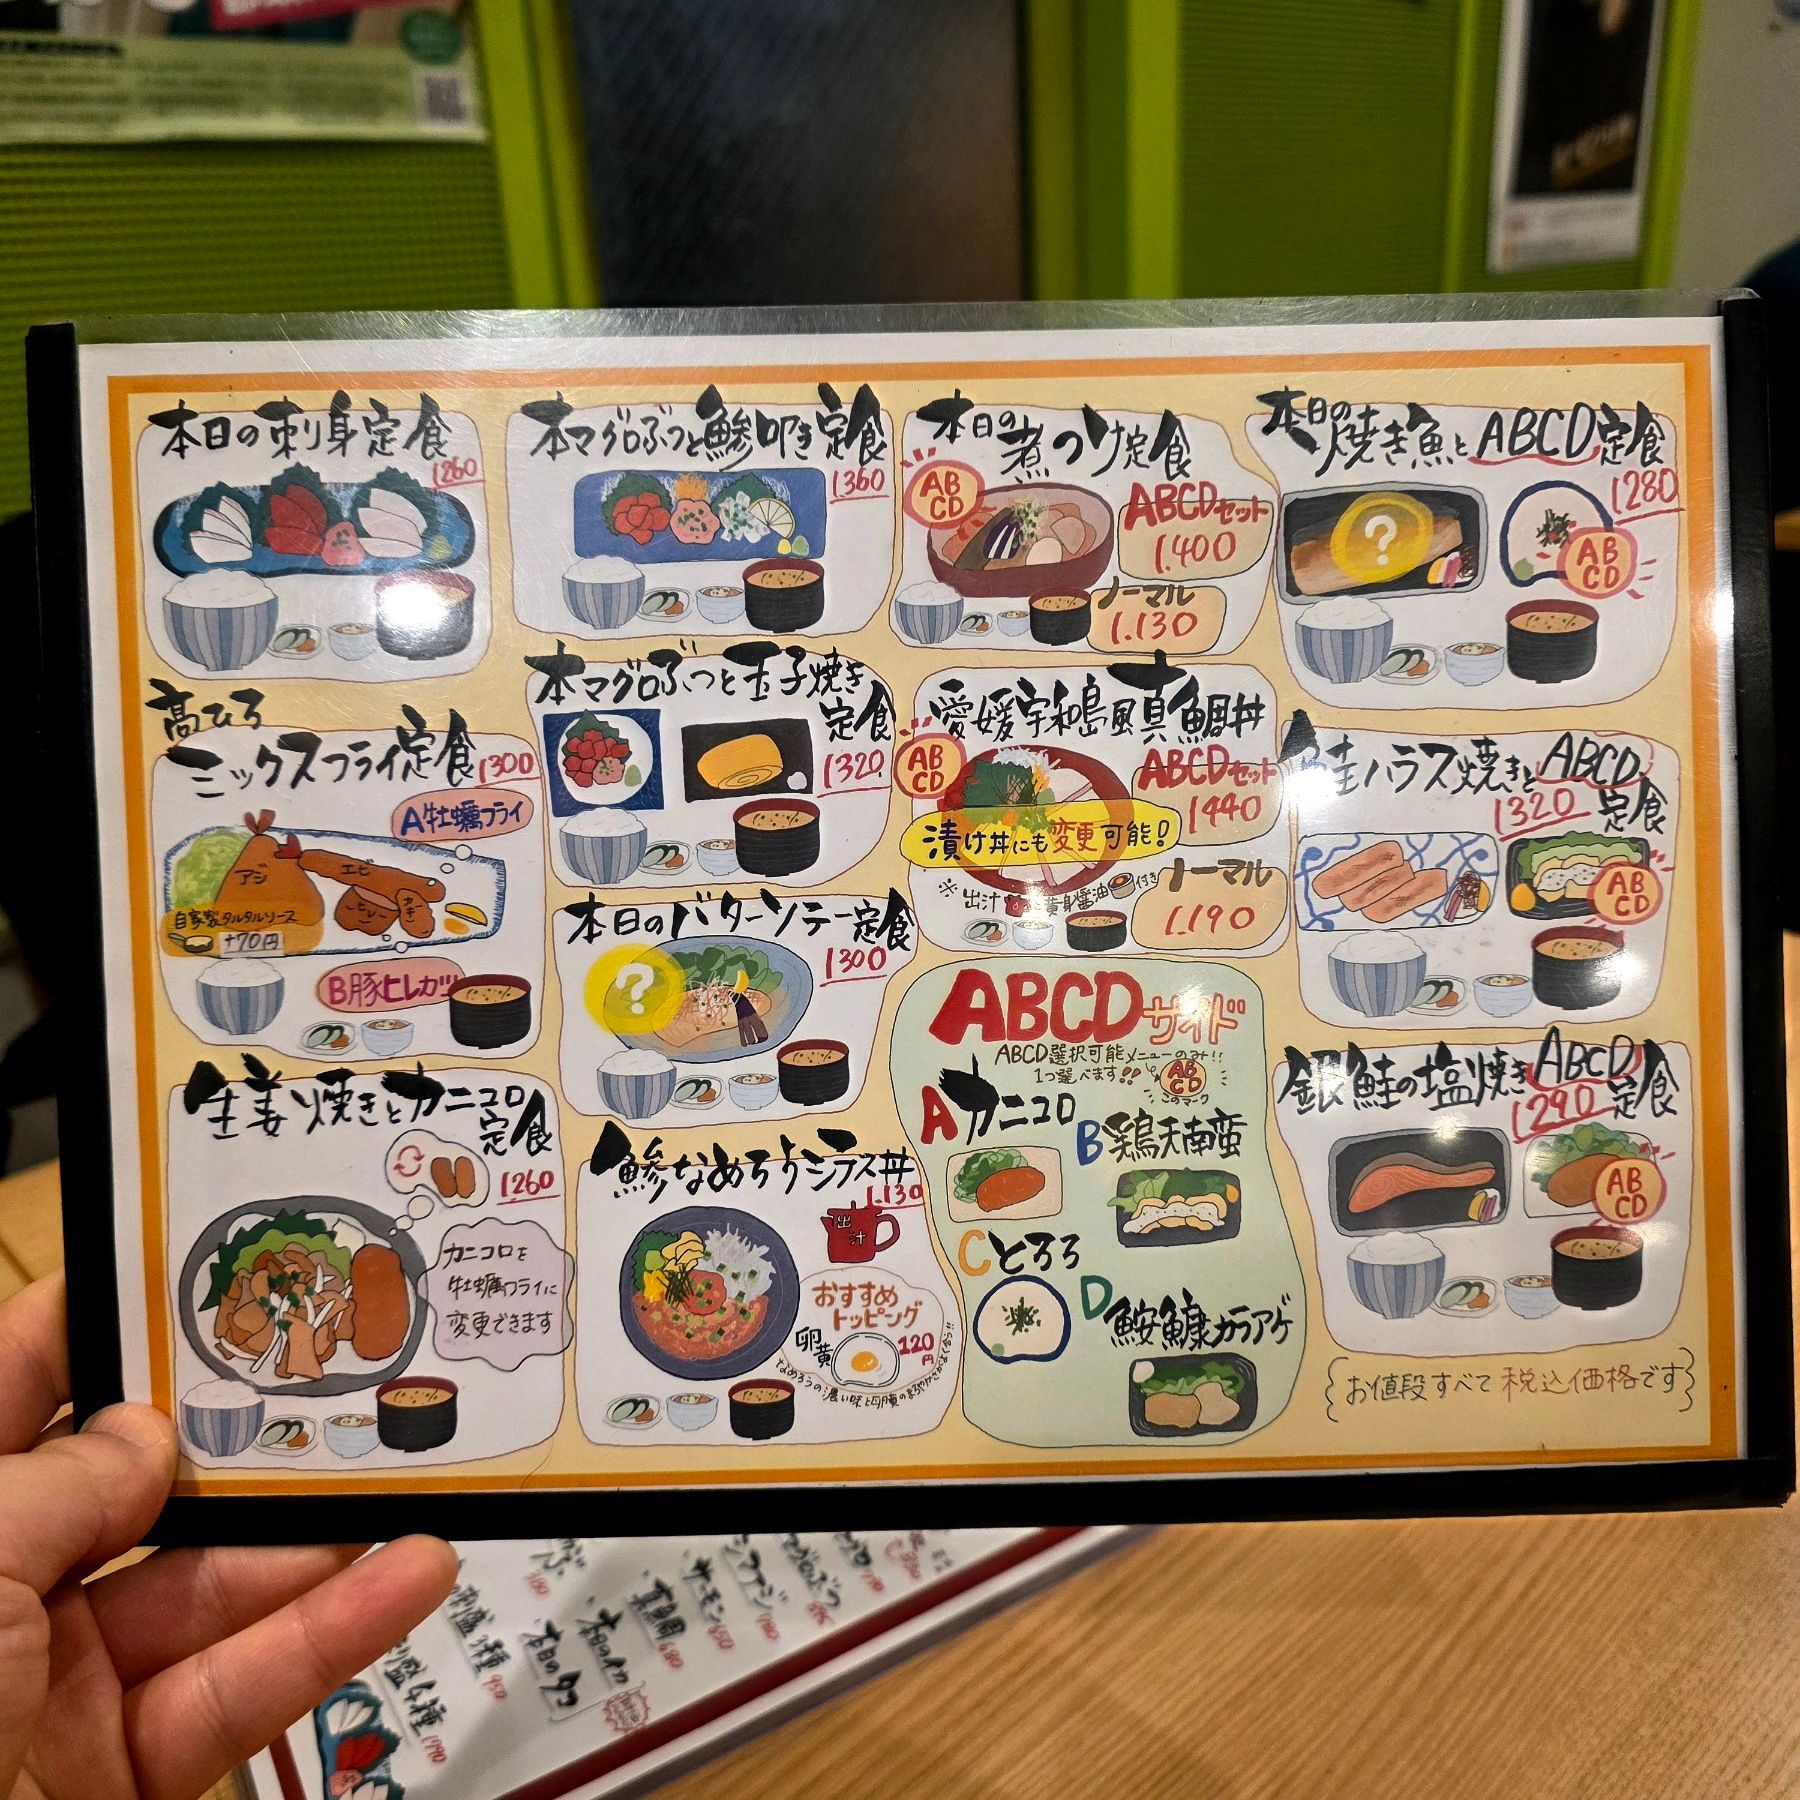 本日の刺身定食
1260
本マグロぶつと鯵叩き定食
1360
本日の煮つけ定食
ABCD
ABCDセット
1.400
ノーマル
1.130
本日の焼き魚とABCD定食
1280
?
ABCD
髙ひろ
ミックスフライ定食
1300
A牡蠣フライ
アジ
エビ
ヒレ
カキ
自家製タルタルソース
+70円
B豚ヒレカツ
本マグロぶつと玉子焼き
定食
1320
愛媛宇和島風真鯛丼
ABCD
ABCDセット
1440
漬け丼にも変更可能!
※出汁
黄身醤油
付き
ノーマル
1.190
鮭ハラス焼きとABCD
定食
1320
ABCD
本日のバターソテー定食
1300
?
生姜焼きとカニコロ
定食
1260
カニコロを
牡蠣フライに
変更できます
鯵なめろうシラス丼
1.130
出汁
おすすめ
トッピング
卵黄
120円
なめろうの濃い味と卵黄のまろやかさがよく合う!!
ABCDサイド
ABCD選択可能メニューのみ!!
1つ選べます!!
ABCD
このマーク
Aカニコロ
B鶏天南蛮
Cとろろ
D鮟鱇カラアゲ
銀鮭の塩焼きABCD
定食
1290
ABCD
お値段すべて税込価格です
3種
950
盛4種
1990
本日のタコ
本日のイカ
真鯛
680
サーモン
650
シマアジ
780